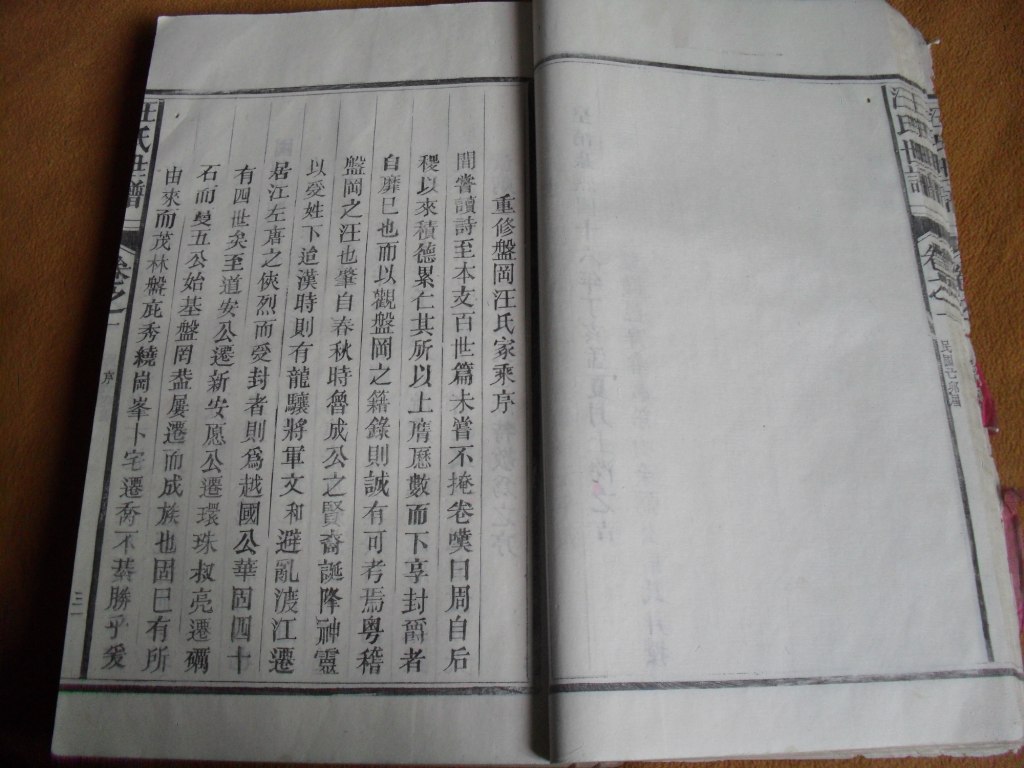 重修盤岡汪氏家乘序
間嘗讀詩至本支百世篇未嘗不掩卷嘆曰周自后
稷以來積德累仁其所以上膺厯數而下享封爵者
自靡已也而以觀盤岡之籍錄則誠有可考焉粤稽
盤岡之汪也肇自春秋時魯成公之賢裔誕降神靈
以爰姓下逌漢時則有龍驤將軍文和避亂渡江遷
居江左唐之俠烈而受封者則爲越國公華固四十
有四世矣至道安公遷新安愿公遷環珠叔亮遷礪
石而旻五公始基盤岡盖屢遷而成族也固已有所
由來而茂林盤庇秀繞岡峯卜宅遷喬不甚勝乎爰
汪氏世譜
卷之一
序
三
汪氏世譜
卷之一